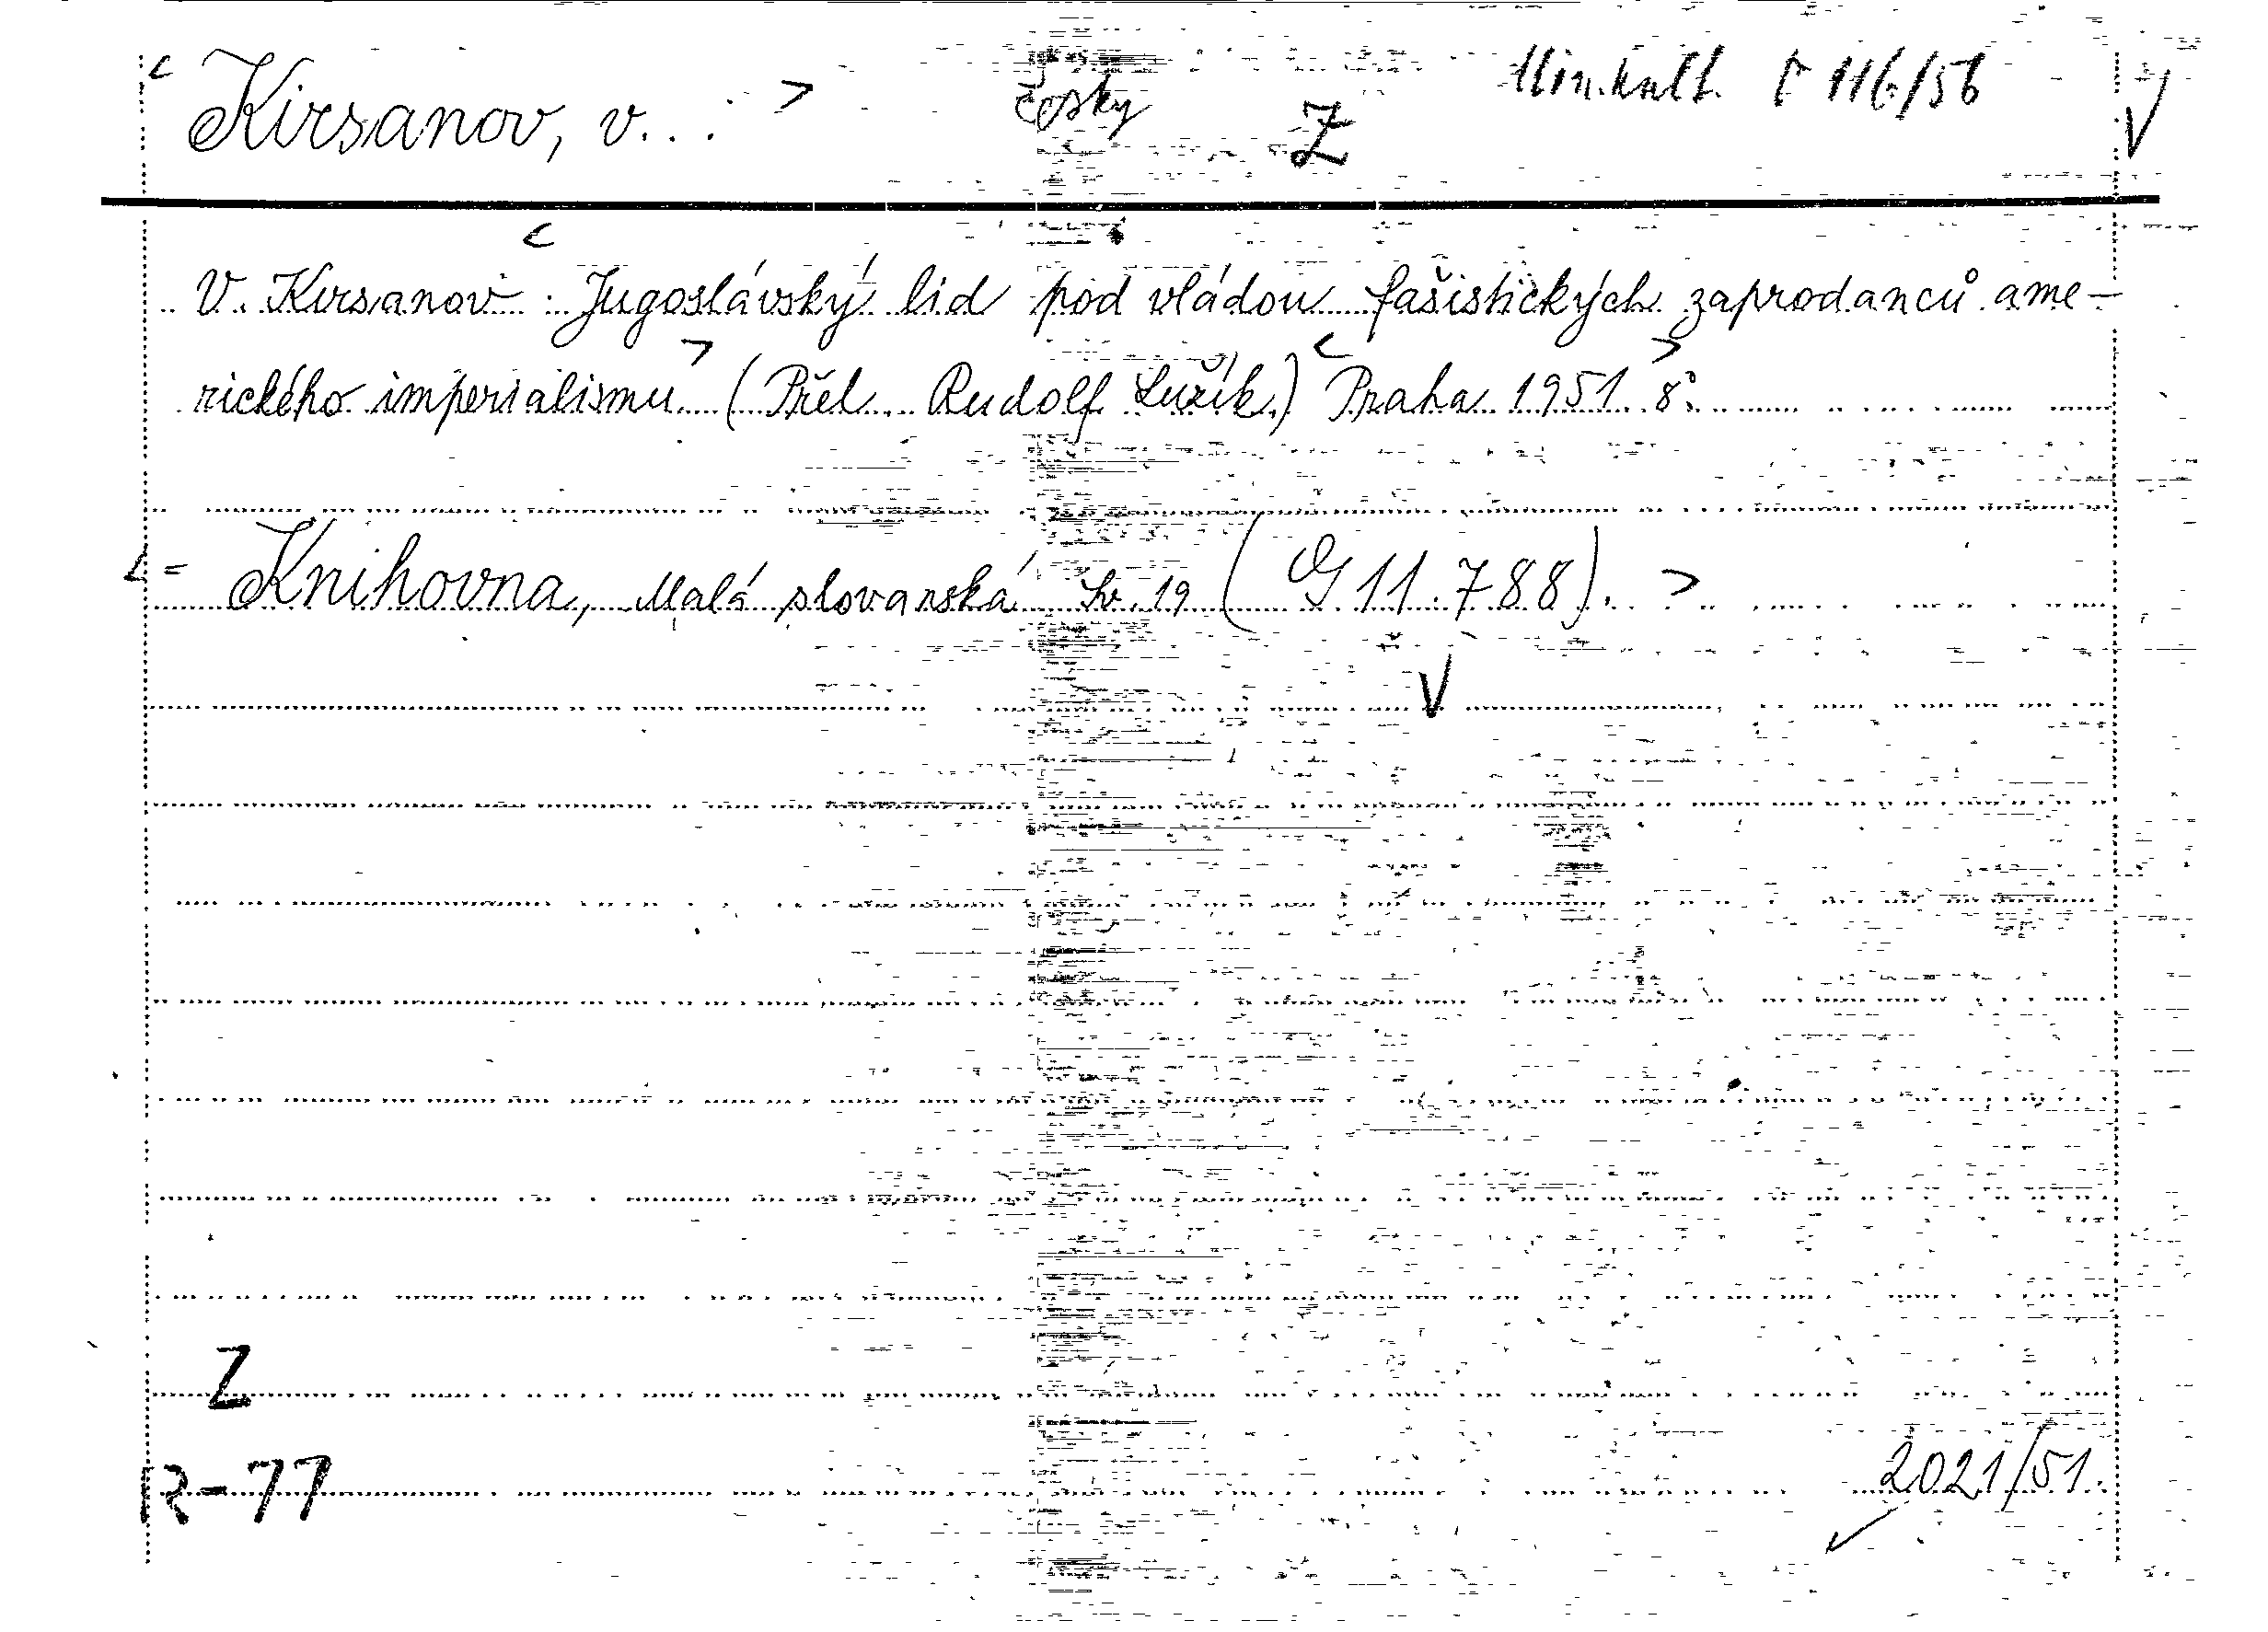 < Kirsanov, v... > česky Z Min.kult. č 116/56 V
<
V. Kirsanov: Jugoslávský lid pod vládou fašistických zaprodanců ame-
rického imperialismu > (Přel. Rudolf Lužík.) < Praha 1951. > 8°.
< = Knihovna, Malá slovanská Sv. 19 (G 11.788). >
V
Z
R-77
2021/51.